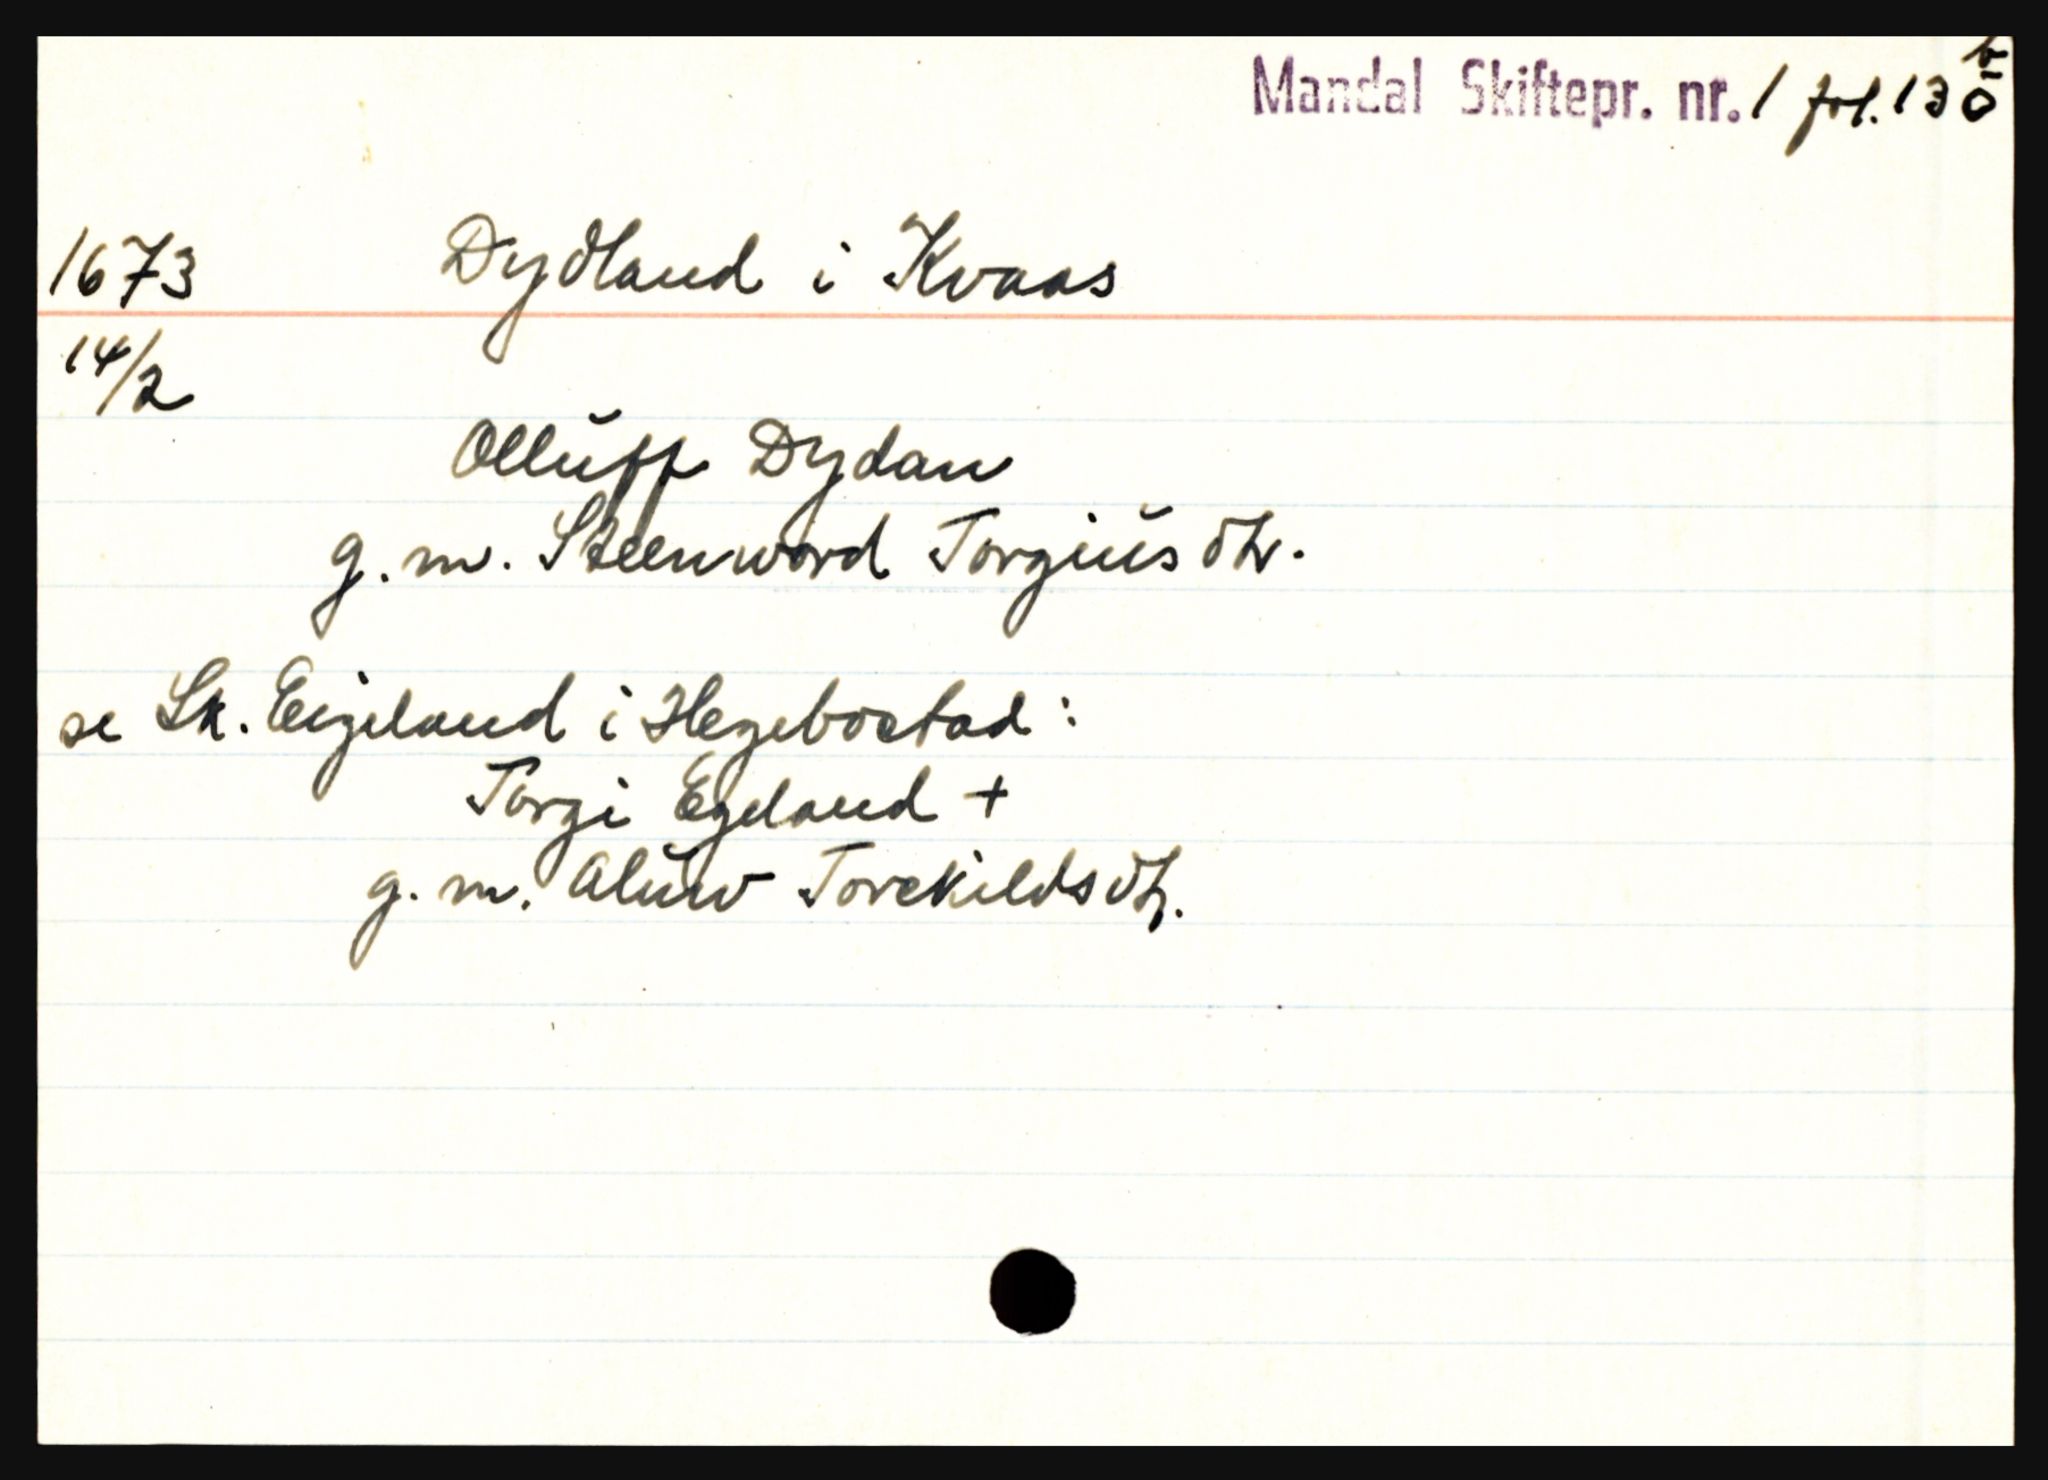 Mandal Skiftepr. nr. 1 fol. 130 b
1673 Dydland i Kvaas
14/2
Olluff Dydan
g. m. Steenword Torgiusdtr.
se Sk. Eigeland i Hegebostad:
Torgi Egeland +
g. m. Aluw Torckildsdtr.